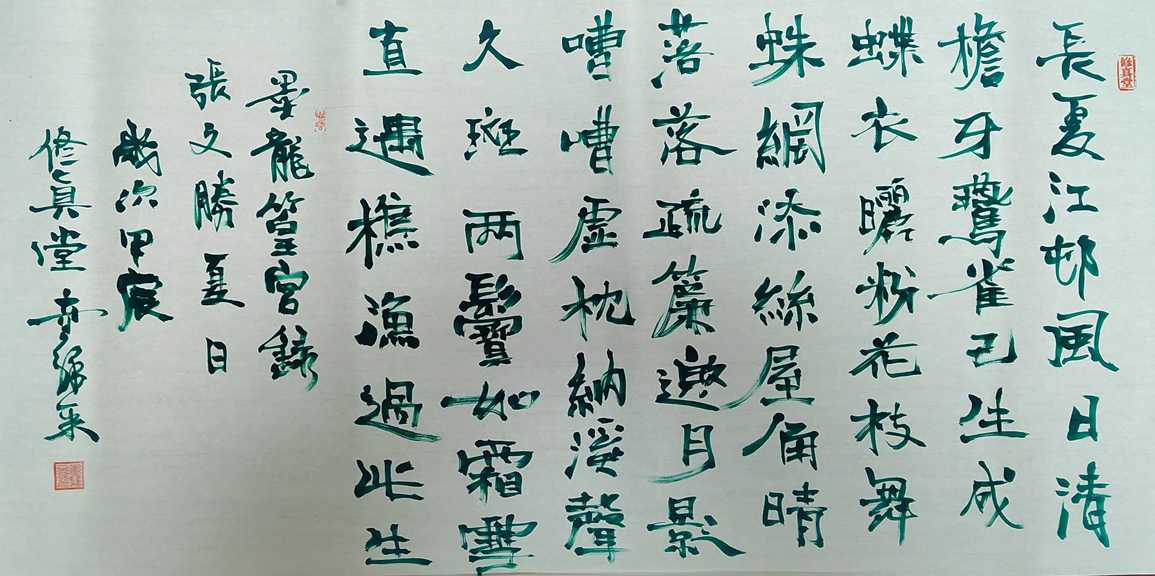 修真堂
長夏江邨風日清
檐牙鷰雀已生成
蝶衣曬粉花枝舞
蛛網添絲屋角晴
落落疏簾邀月影
嘈嘈虛枕納溪聲
久斑兩鬢如霜雪
直遇樵漁過此生
墨龍篁宮錄
張文勝夏日
歲次甲宸
修真堂亦歸來